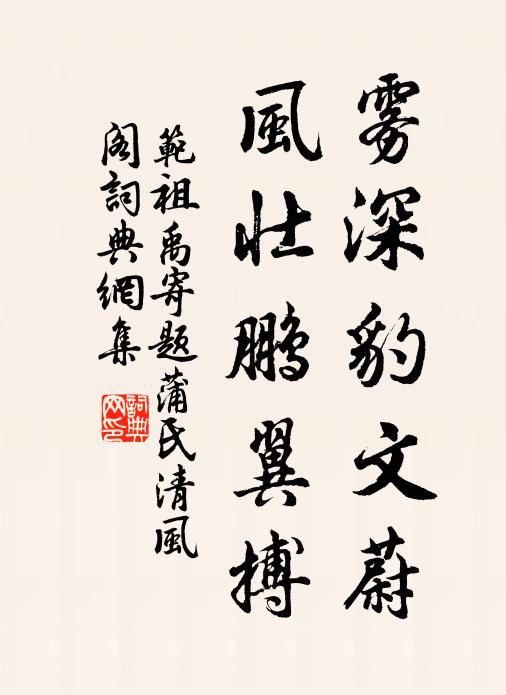 雾深豹文蔚
風壯鵬翼搏
範祖禹寄题蒲氏清風
阁詞典網集
詞典网印